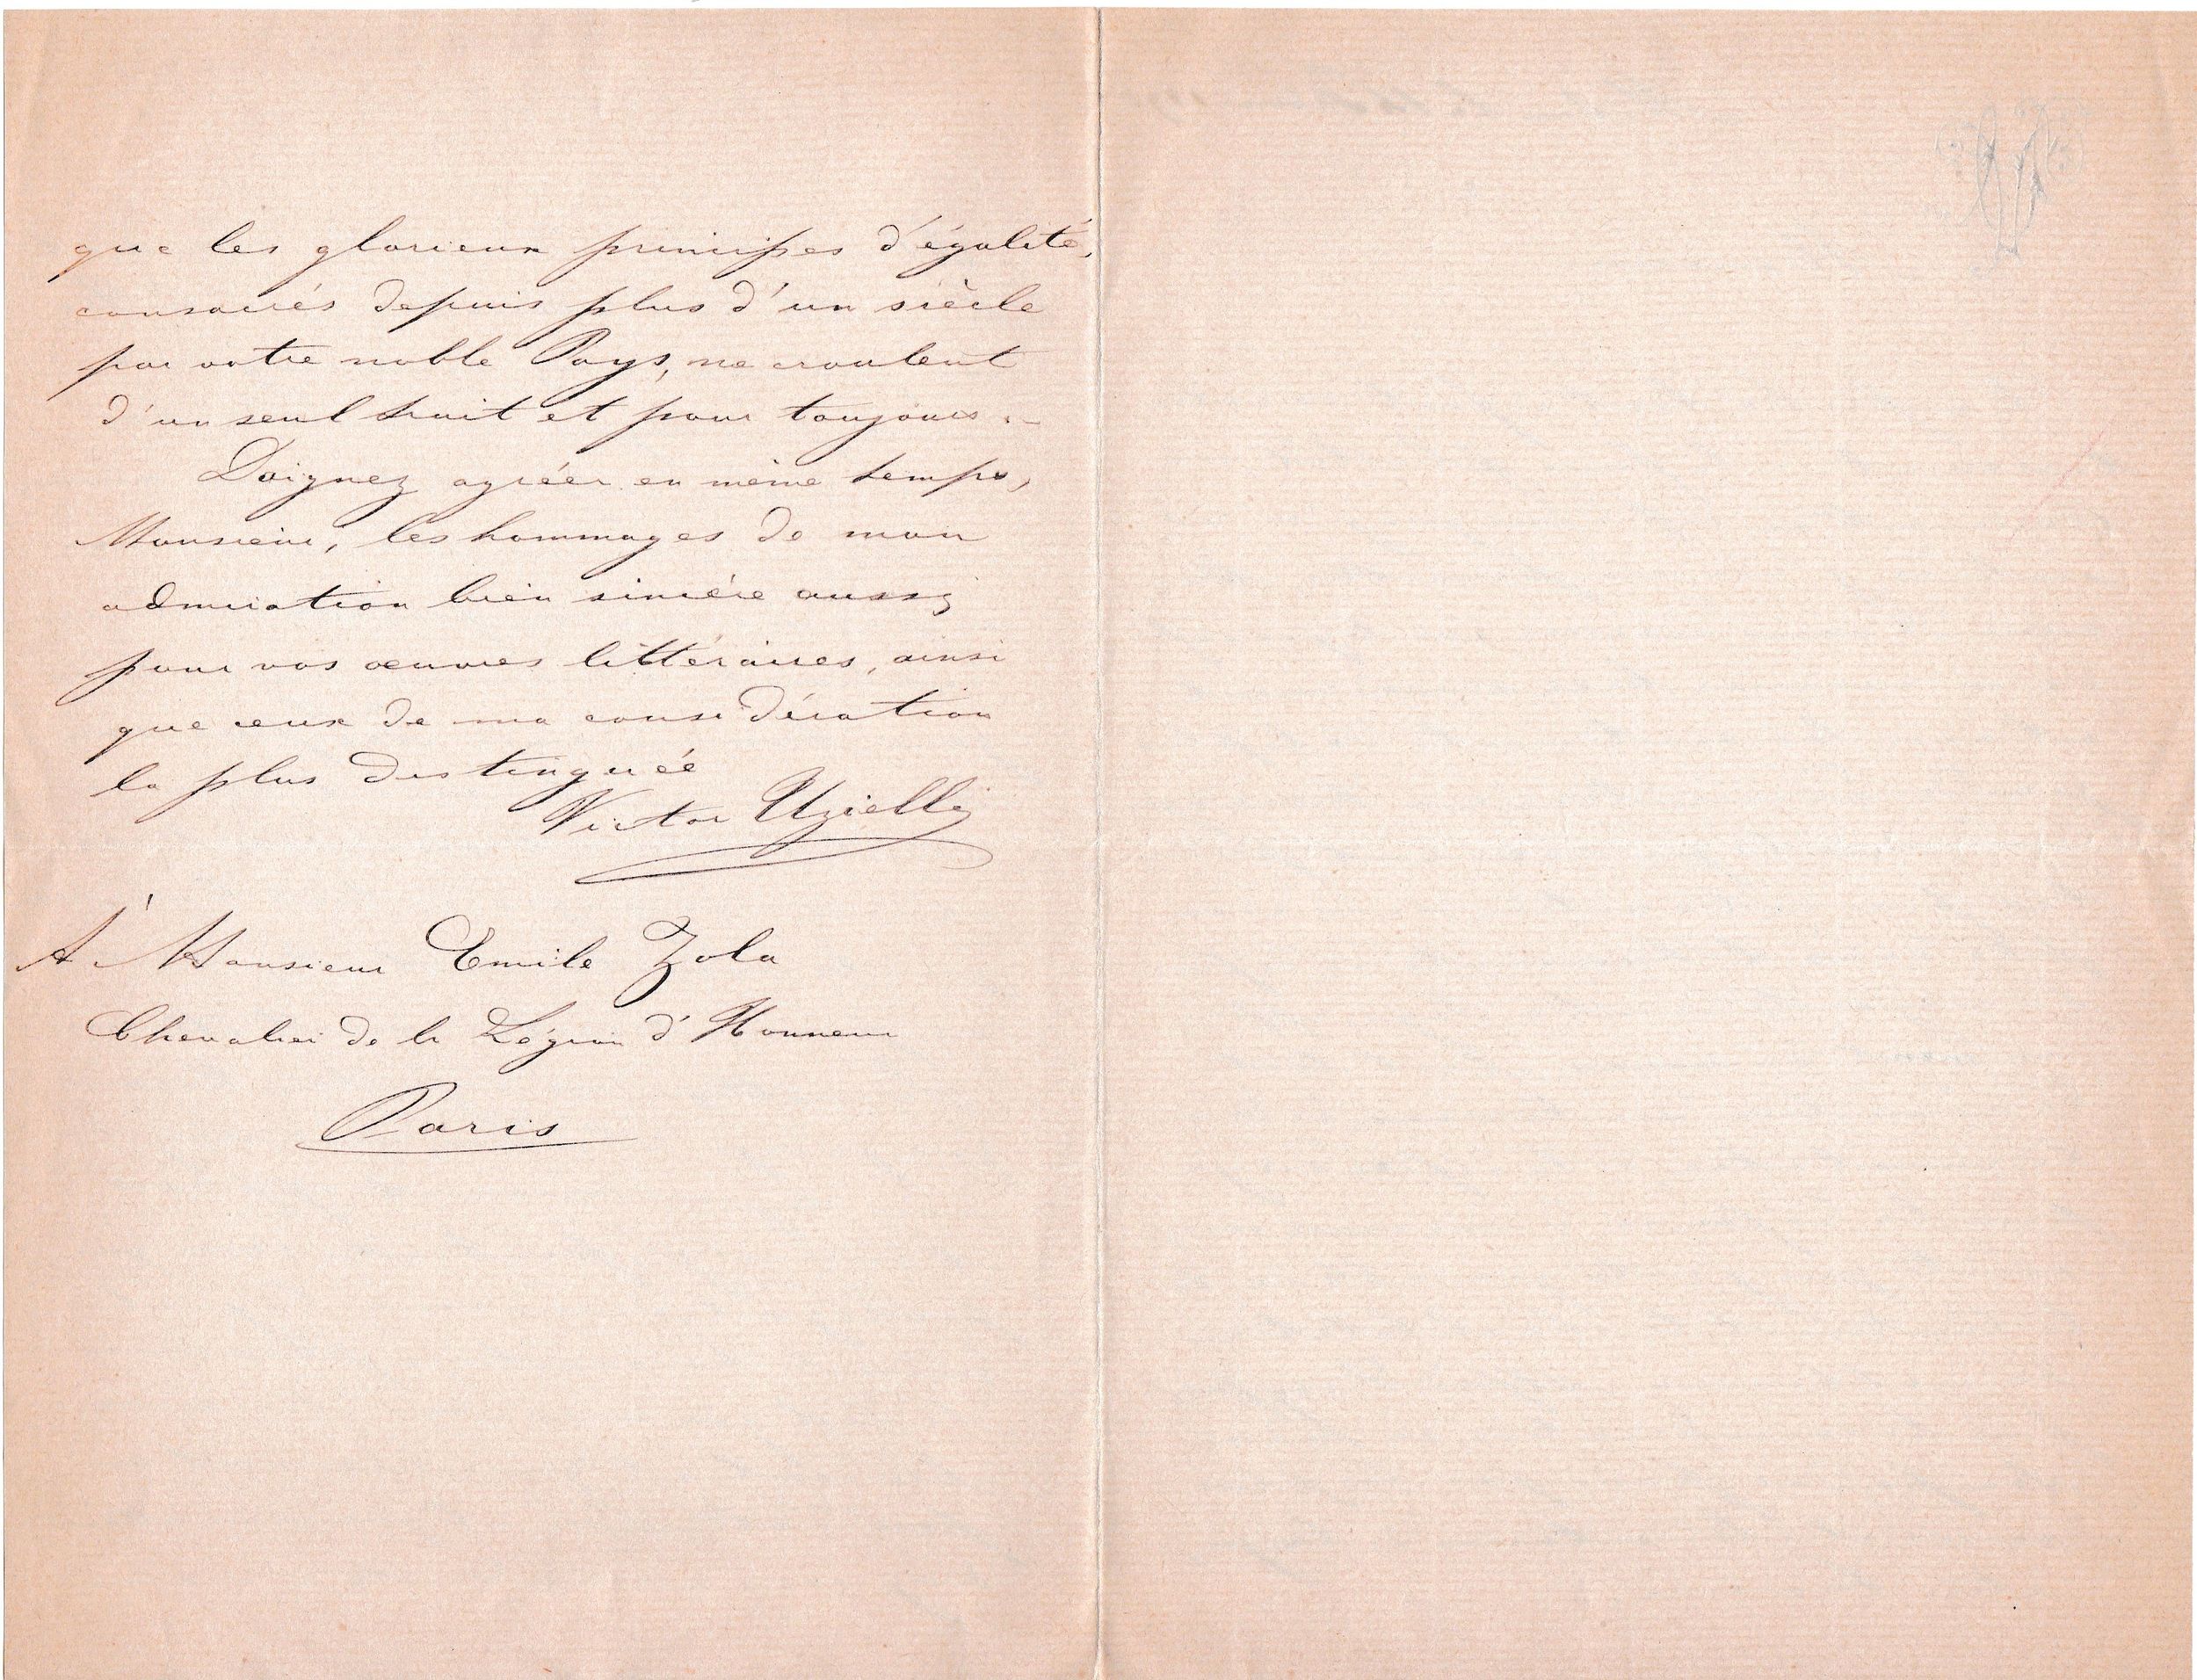 que les glorieux principes d'égalité,
consacrés depuis plus d'un siècle
par votre noble Pays, ne croulent
d'un seul trait et pour toujours.
Daignez agréer en même temps,
Monsieur, les hommages de mon
admiration bien sincère aussi
pour vos œuvres littéraires, ainsi
que ceux de ma considération
la plus distinguée
Victor Uzielli
À Monsieur Emile Zola
Chevalier de la Légion d'Honneur
Paris